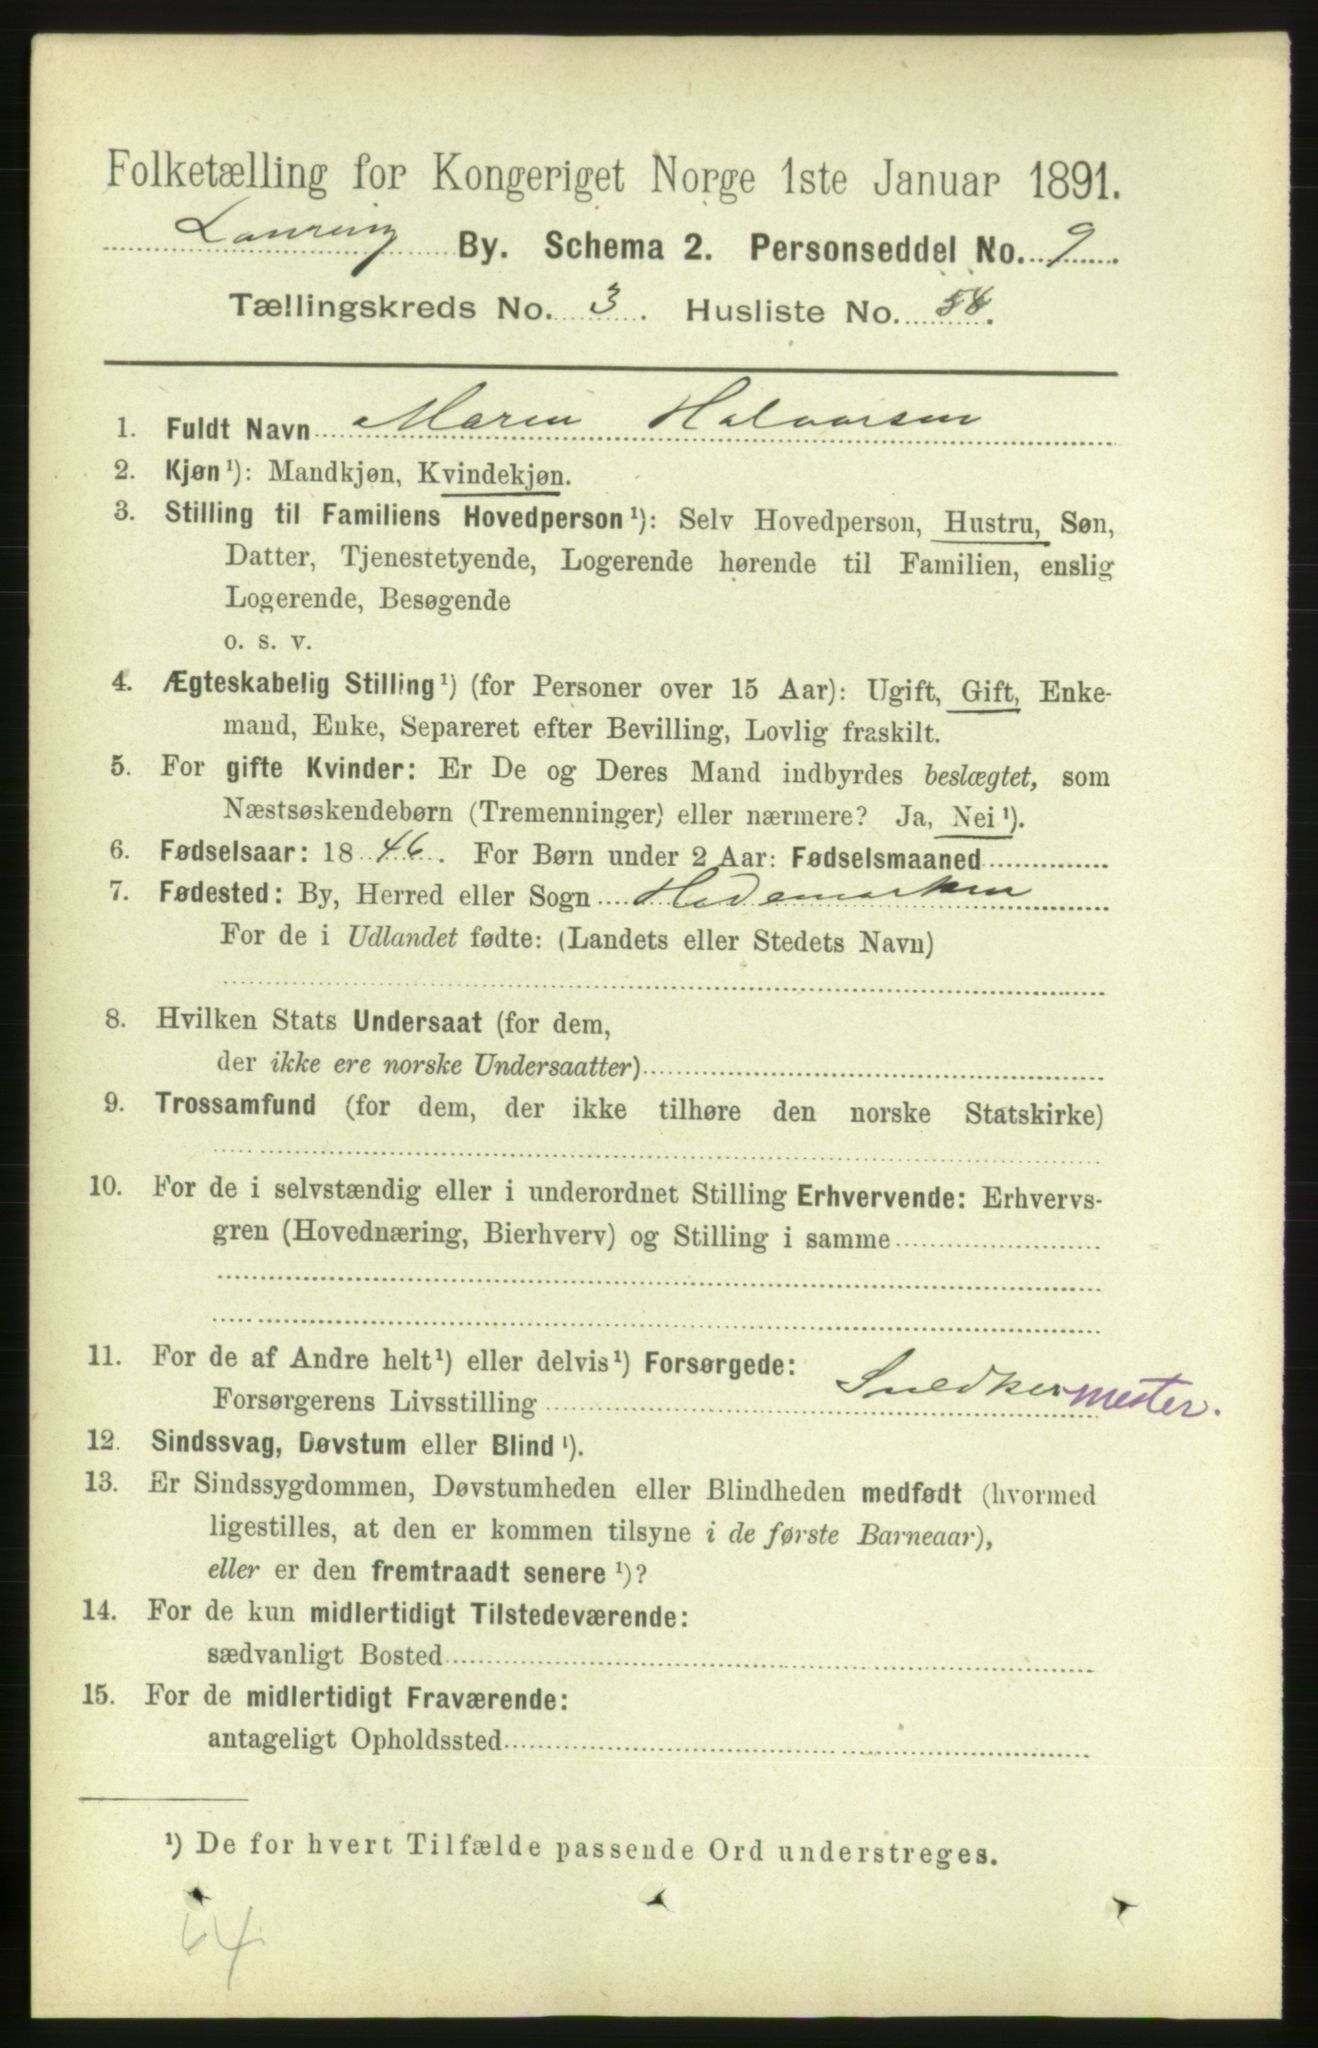 Folketælling for Kongeriget Norge 1ste Januar 1891.
By. Schema 2. Personseddel No. 9
Tællingskreds No. 3. Husliste No. 58.
1. Fuldt Navn Maren Halvorsen
2. Kjøn¹): Mandkjøn, Kvindekjøn.
3. Stilling til Familiens Hovedperson¹): Selv Hovedperson, Hustru, Søn,
Datter, Tjenestetyende, Logerende hørende til Familien, enslig
Logerende, Besøgende
o. s. v.
4. Ægteskabelig Stilling¹) (for Personer over 15 Aar): Ugift, Gift, Enke-
mand, Enke, Separeret efter Bevilling, Lovlig fraskilt.
5. For gifte Kvinder: Er De og Deres Mand indbyrdes beslægtet, som
Næstsøskendebørn (Tremenninger) eller nærmere? Ja, Nei¹).
6. Fødselsaar: 1846. For Børn under 2 Aar: Fødselsmaaned
7. Fødested: By, Herred eller Sogn Hedemarken
For de i Udlandet fødte: (Landets eller Stedets Navn)
8. Hvilken Stats Undersaat (for dem,
der ikke ere norske Undersaatter)
9. Trossamfund (for dem, der ikke tilhøre den norske Statskirke)
10. For de i selvstændig eller i underordnet Stilling Erhvervende: Erhvervs-
gren (Hovednæring, Bierhverv) og Stilling i samme
11. For de af Andre helt¹) eller delvis¹) Forsørgede:
Forsørgerens Livsstilling Snedkermester.
12. Sindssvag, Døvstum eller Blind¹).
13. Er Sindssygdommen, Døvstumheden eller Blindheden medfødt (hvormed
ligestilles, at den er kommen tilsyne i de første Barneaar),
eller er den fremtraadt senere¹)?
14. For de kun midlertidigt Tilstedeværende:
sædvanligt Bosted
15. For de midlertidigt Fraværende:
antageligt Opholdssted
¹) De for hvert Tilfælde passende Ord understreges.
64